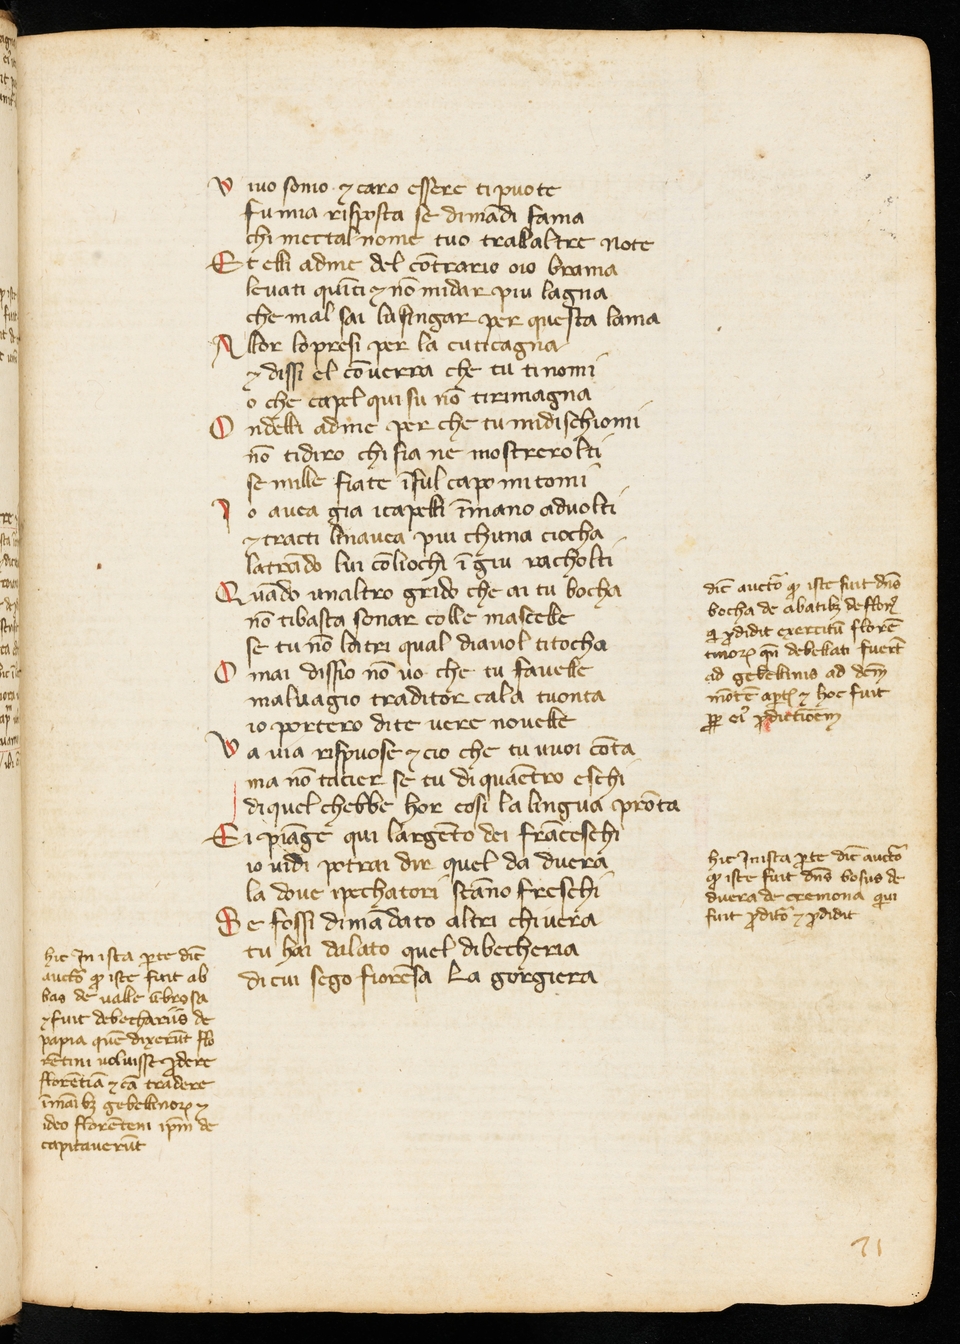 V iuo sonio ⁊ caro essere ti puote
fu mia risposta se dimādi fama
chi metta l nome tuo tra laltre note
Et elli adme del cōtrario oio brama
levati quīci ⁊ nō mi dar piu lagna
che mal sai lusingar per questa lama
Allor lo presi per la cuticagna
⁊ dissi el cōverra che tu ti nomi
o che capel qui su nō ti rimagna
O ndelli adme per che tu mi dischiomi
nō ti diro chi sia ne mostrerolti
se mille fiate īsul capo mi tomi
I o avea gia i capelli ī mano advolti
⁊ tracti linavea piu chuna ciocha
latrādo lui cō liochi ī giu racholti
Quādo unaltro grido che ai tu bocha
nō ti basta sonar colle mascelle
se tu nō latri qual diavol ti tocha
O mai dissio nō vo che tu favelle
malvagio traditor cala tuonta
io portero di te vere novelle
V a via rispuose ⁊ cio che tu vuoi cōta
ma nō tacier se tu di quaētro eschi
di quel chebbe hor cosi la lingua prōta
Ei piāge qui largēto dei frāceschi
io vidi potrai dir quel da duera
la dove i pechatori stāno freschi
Se fossi dimādato altri chi vera
tu hai dalato quel di becheria
di cui sego fiorēsa la gorgiera
dic̄ auctor ꝙ iste fuit dn̄s
bocha de abatibꝫ de florē
q̄ ꝓdidit exercitū florē
tinorꝫ qn̄ debellati fuerūt
ad gebellinis ad
mōtē apertū ⁊ hoc fuit
ꝓp̄ eiꝰ ꝓdictiōem
hic In ista ꝑte dic̄ auctor
ꝙ iste fuit dn̄s bosus de
duera de cremona qui
fuit ꝓditor ⁊ ꝓdidit
hic In ista ꝑte dic̄
auctor ꝙ iste fuit ab
bas de valle ūbrosa
⁊ fuit de bechariis de
papia quē dixerūt flo
rētini voluisse ꝓdere
florētiā ⁊ eā tradere
ī manibꝫ gebellinorꝫ ⁊
ideo florēteni ip̄m de
capitaverūt
71